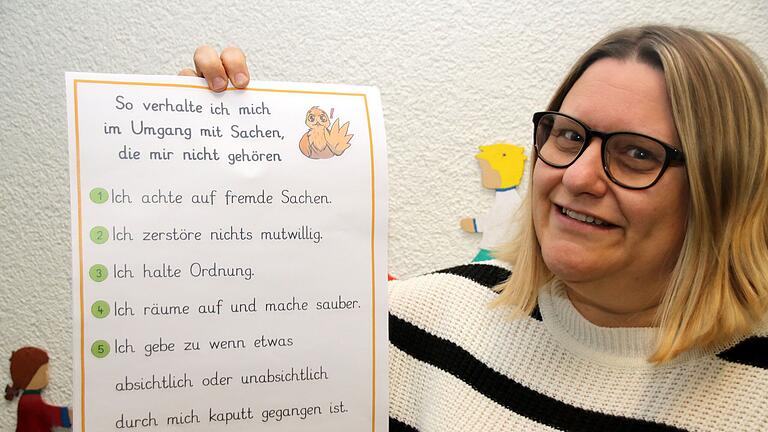 So verhalte ich mich
im Umgang mit Sachen,
die mir nicht gehören
1 Ich achte auf fremde Sachen.
2 Ich zerstöre nichts mutwillig.
3 Ich halte Ordnung.
4 Ich räume auf und mache sauber.
5 Ich gebe zu wenn etwas
absichtlich oder unabsichtlich
durch mich kaputt gegangen ist.